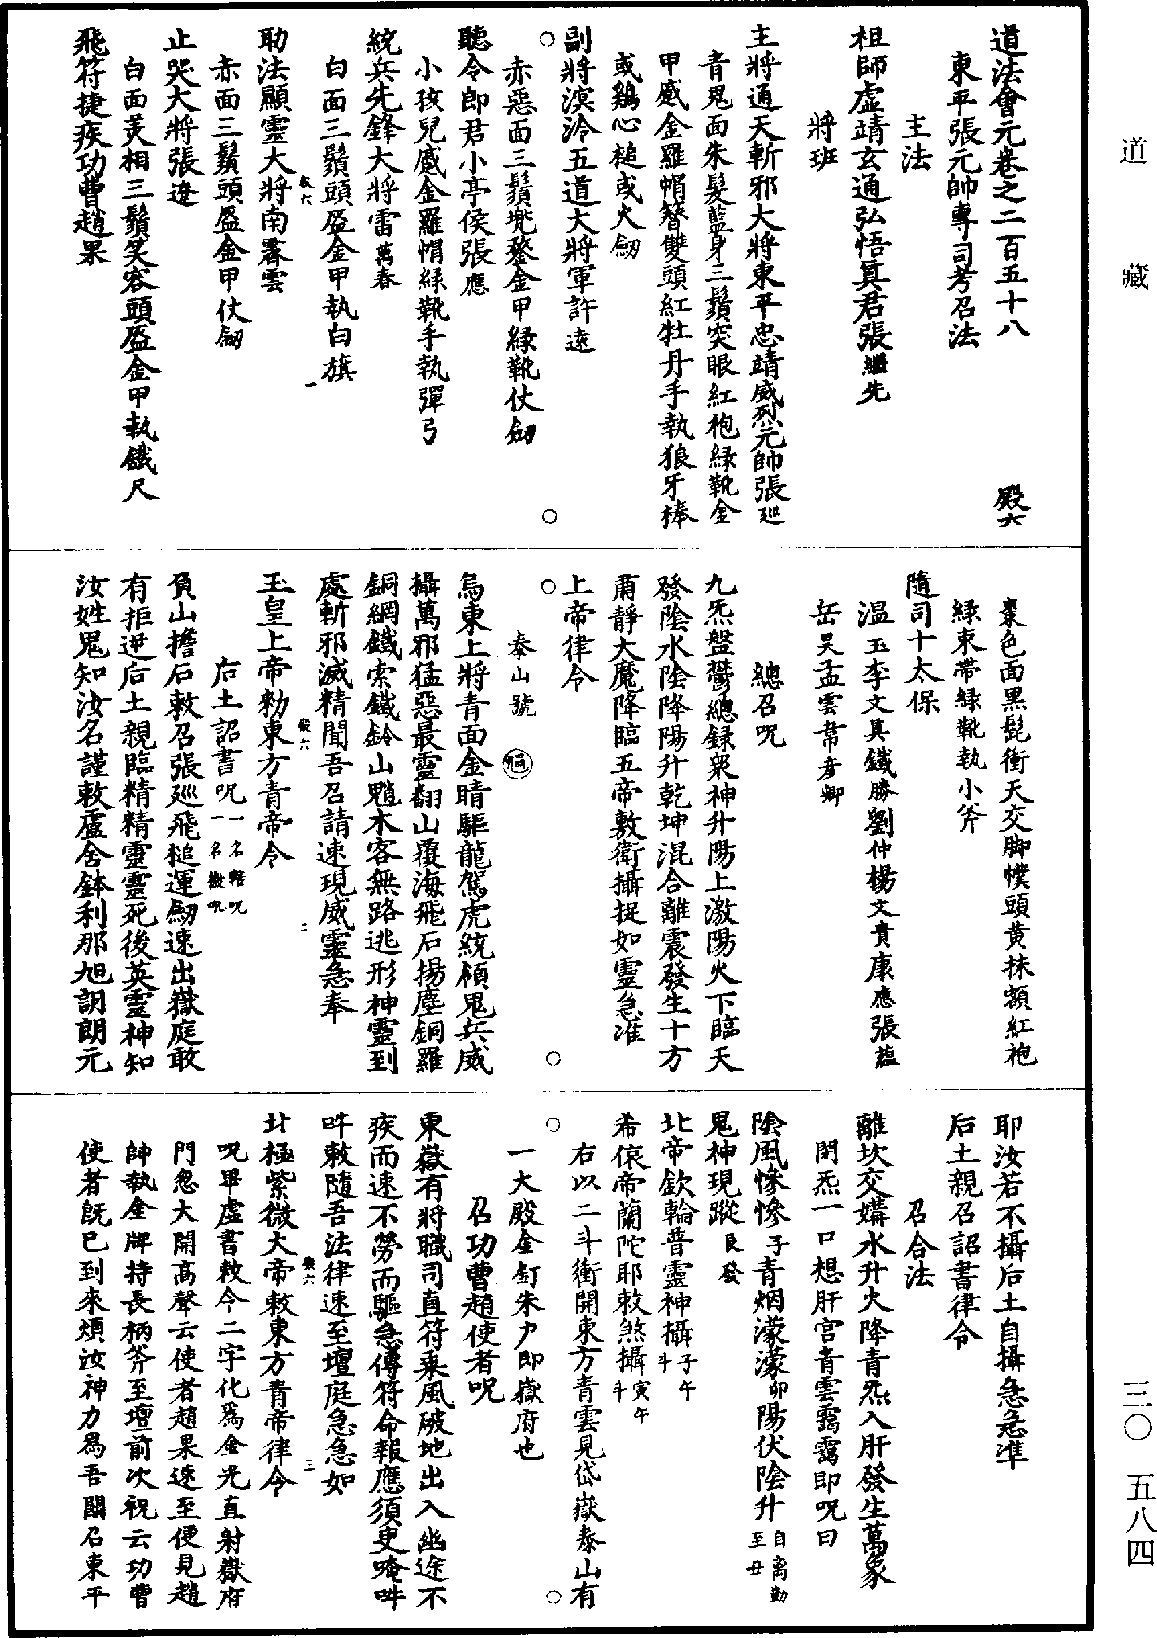 道法會元卷之二百五十八　殿六
東平張元帥專司考召法
主法
祖師虛靖玄通弘悟真君張繼先
將班
主將通天斬邪大將東平忠靖威烈元帥張巡
青鬼面朱髮藍身三鬚突眼紅袍綠靴金
甲感金羅帽簪雙頭紅牡丹手執狼牙棒
或鷄心槌或火劒
副將溟泠五道大將軍許遠
赤惡面三鬚兜鍪金甲綠靴仗劒
聽令郎君小亭侯張應
小孩兒感金羅帽綠靴手執彈弓
統兵先鋒大將雷萬春
白面三鬚頭盔金甲執白旗
殿六　一
助法顯靈大將南霽雲
赤面三鬚頭盔金甲仗劒
止哭大將張遼
白面美相三鬚笑容頭盔金甲執鐵尺
飛符捷疾功曹趙果
棗色面黑髭衝天交脚幞頭黃抹額紅袍
綠束帶綠靴執小斧
隨司十太保
溫玉李文真鐵勝劉仲楊文貴康應張蘊
岳昊孟雲韋彥卿
總召呪
九炁盤鬱總錄衆神升陽上激陽火下臨天
發陰水陰降陽升乾坤混合離震發生十方
肅靜大魔降臨五帝敷衛攝捉如靈急准
上帝律令
泰山號
烏東上將青面金睛驅龍駕虎統領鬼兵威
攝萬邪猛惡最靈翻山覆海飛石揚塵銅羅
銅網鐵索鐵鈴山魈木客無路逃形神靈到
處斬邪滅精聞吾召請速現威靈急奉
殿六　二
玉皇上帝勑東方青帝令
后土詔書呪一名轄呪一名檄呪
負山擔石敕召張巡飛槌運劒速出嶽庭敢
有拒逆后土親臨精精靈靈死後英靈神知
汝姓鬼知汝名謹敕盧舍鉢利那旭訶朗元
耶汝若不攝后土自攝急急准
后土親召詔書律令
召合法
離坎交媾水升火降青炁入肝發生萬象
閉炁一口想肝宮青雲靄靄即呪曰
陰風慘慘子青烟濛濛卯陽伏陰升自离勘至丑
鬼神現蹤艮發
北帝欽輪普靈神攝子午斗
希倀帝蘭陀耶敕煞攝寅午斗
右以二斗衝開東方青雲見岱嶽泰山有
一大殿金釘朱户即嶽府也
召功曹趙使者呪
東嶽有將職司直符乘風破地出入幽途不
疾而速不勞而驅急傳符命報應須臾唵吽
吽敕隨吾法律速至壇庭急急如
殿六　三
北極紫微大帝敕東方青帝律令
呪畢虛書敕令二字化爲金光直射嶽府
門忽大開高聲云使者趙果速至便見趙
帥執金牌持長柄斧至壇前次祝云功曹
使者旣已到來煩汝神力爲吾關召東平
道
藏
三〇　五八四